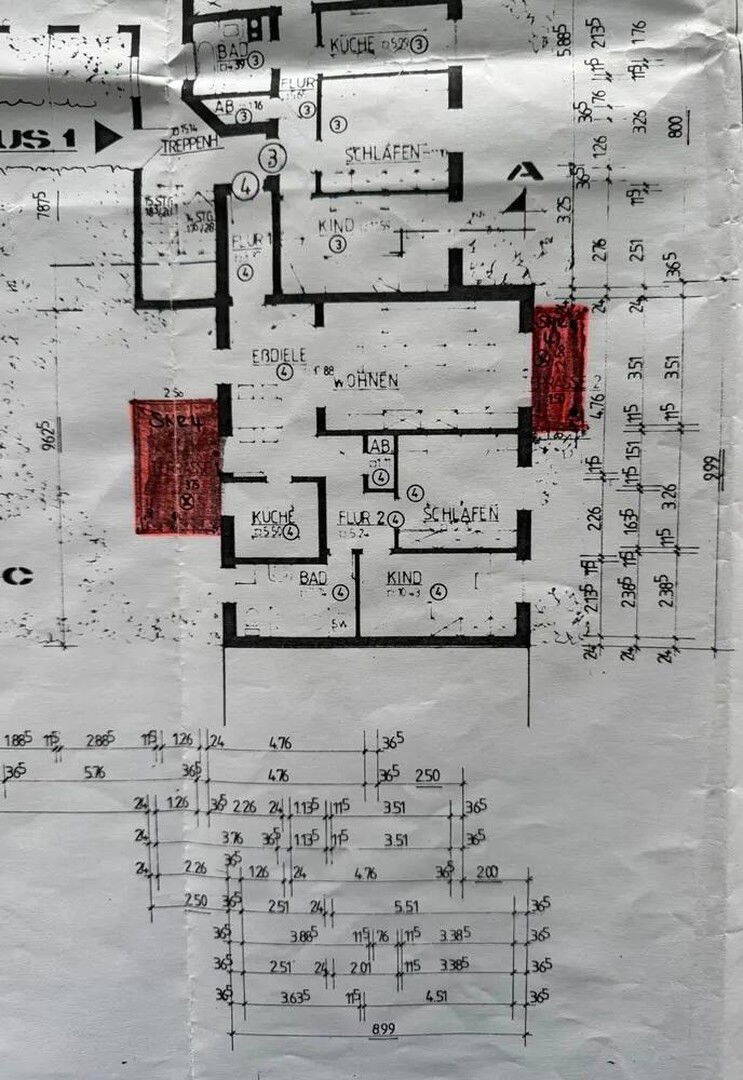 BAD
③
KÜCHE
③
FLUR
③
AB
③
③
SCHLAFEN
US 1
TREPPENH.
③
④
A
KIND
③
FLUR 1
④
EßDIELE
④
WOHNEN
AB
④
④
KÜCHE
④
FLUR 2 ④
SCHLAFEN
C
BAD
④
KIND
④
SW
5.88⁵
2.13⁵
1.76
11⁵
11⁵
76
36⁵
3.26
8.00
1.26
36⁵
11⁵
3.25
2.76
2.51
36⁵
24
24
7.87⁵
9.62⁵
2.50
4.76
3.51
3.51
11⁵
11⁵
11⁵
11⁵
1.51
9.99
2.26
1.63⁵
3.26
11⁵
11⁵
11⁵
2.13⁵
2.38⁵
2.38⁵
24
24
24
1.88⁵ 11⁵ 2.88⁵ 11⁵ 1.26 24 4.76 36⁵
36⁵ 5.76 36⁵ 4.76 36⁵ 2.50
24 1.26 36⁵ 2.26 24 1.13⁵ 11⁵ 3.51 36⁵
24 3.76 36⁵ 1.13⁵ 11⁵ 3.51 36⁵
24 2.26 36⁵ 1.26 24 4.76 36⁵ 2.00
2.50 36⁵ 2.51 24 5.51 36⁵
36⁵ 3.88⁵ 11⁵ 76 11⁵ 3.38⁵ 36⁵
36⁵ 2.51 24 2.01 11⁵ 3.38⁵ 36⁵
36⁵ 3.63⁵ 11⁵ 4.51 36⁵
8.99